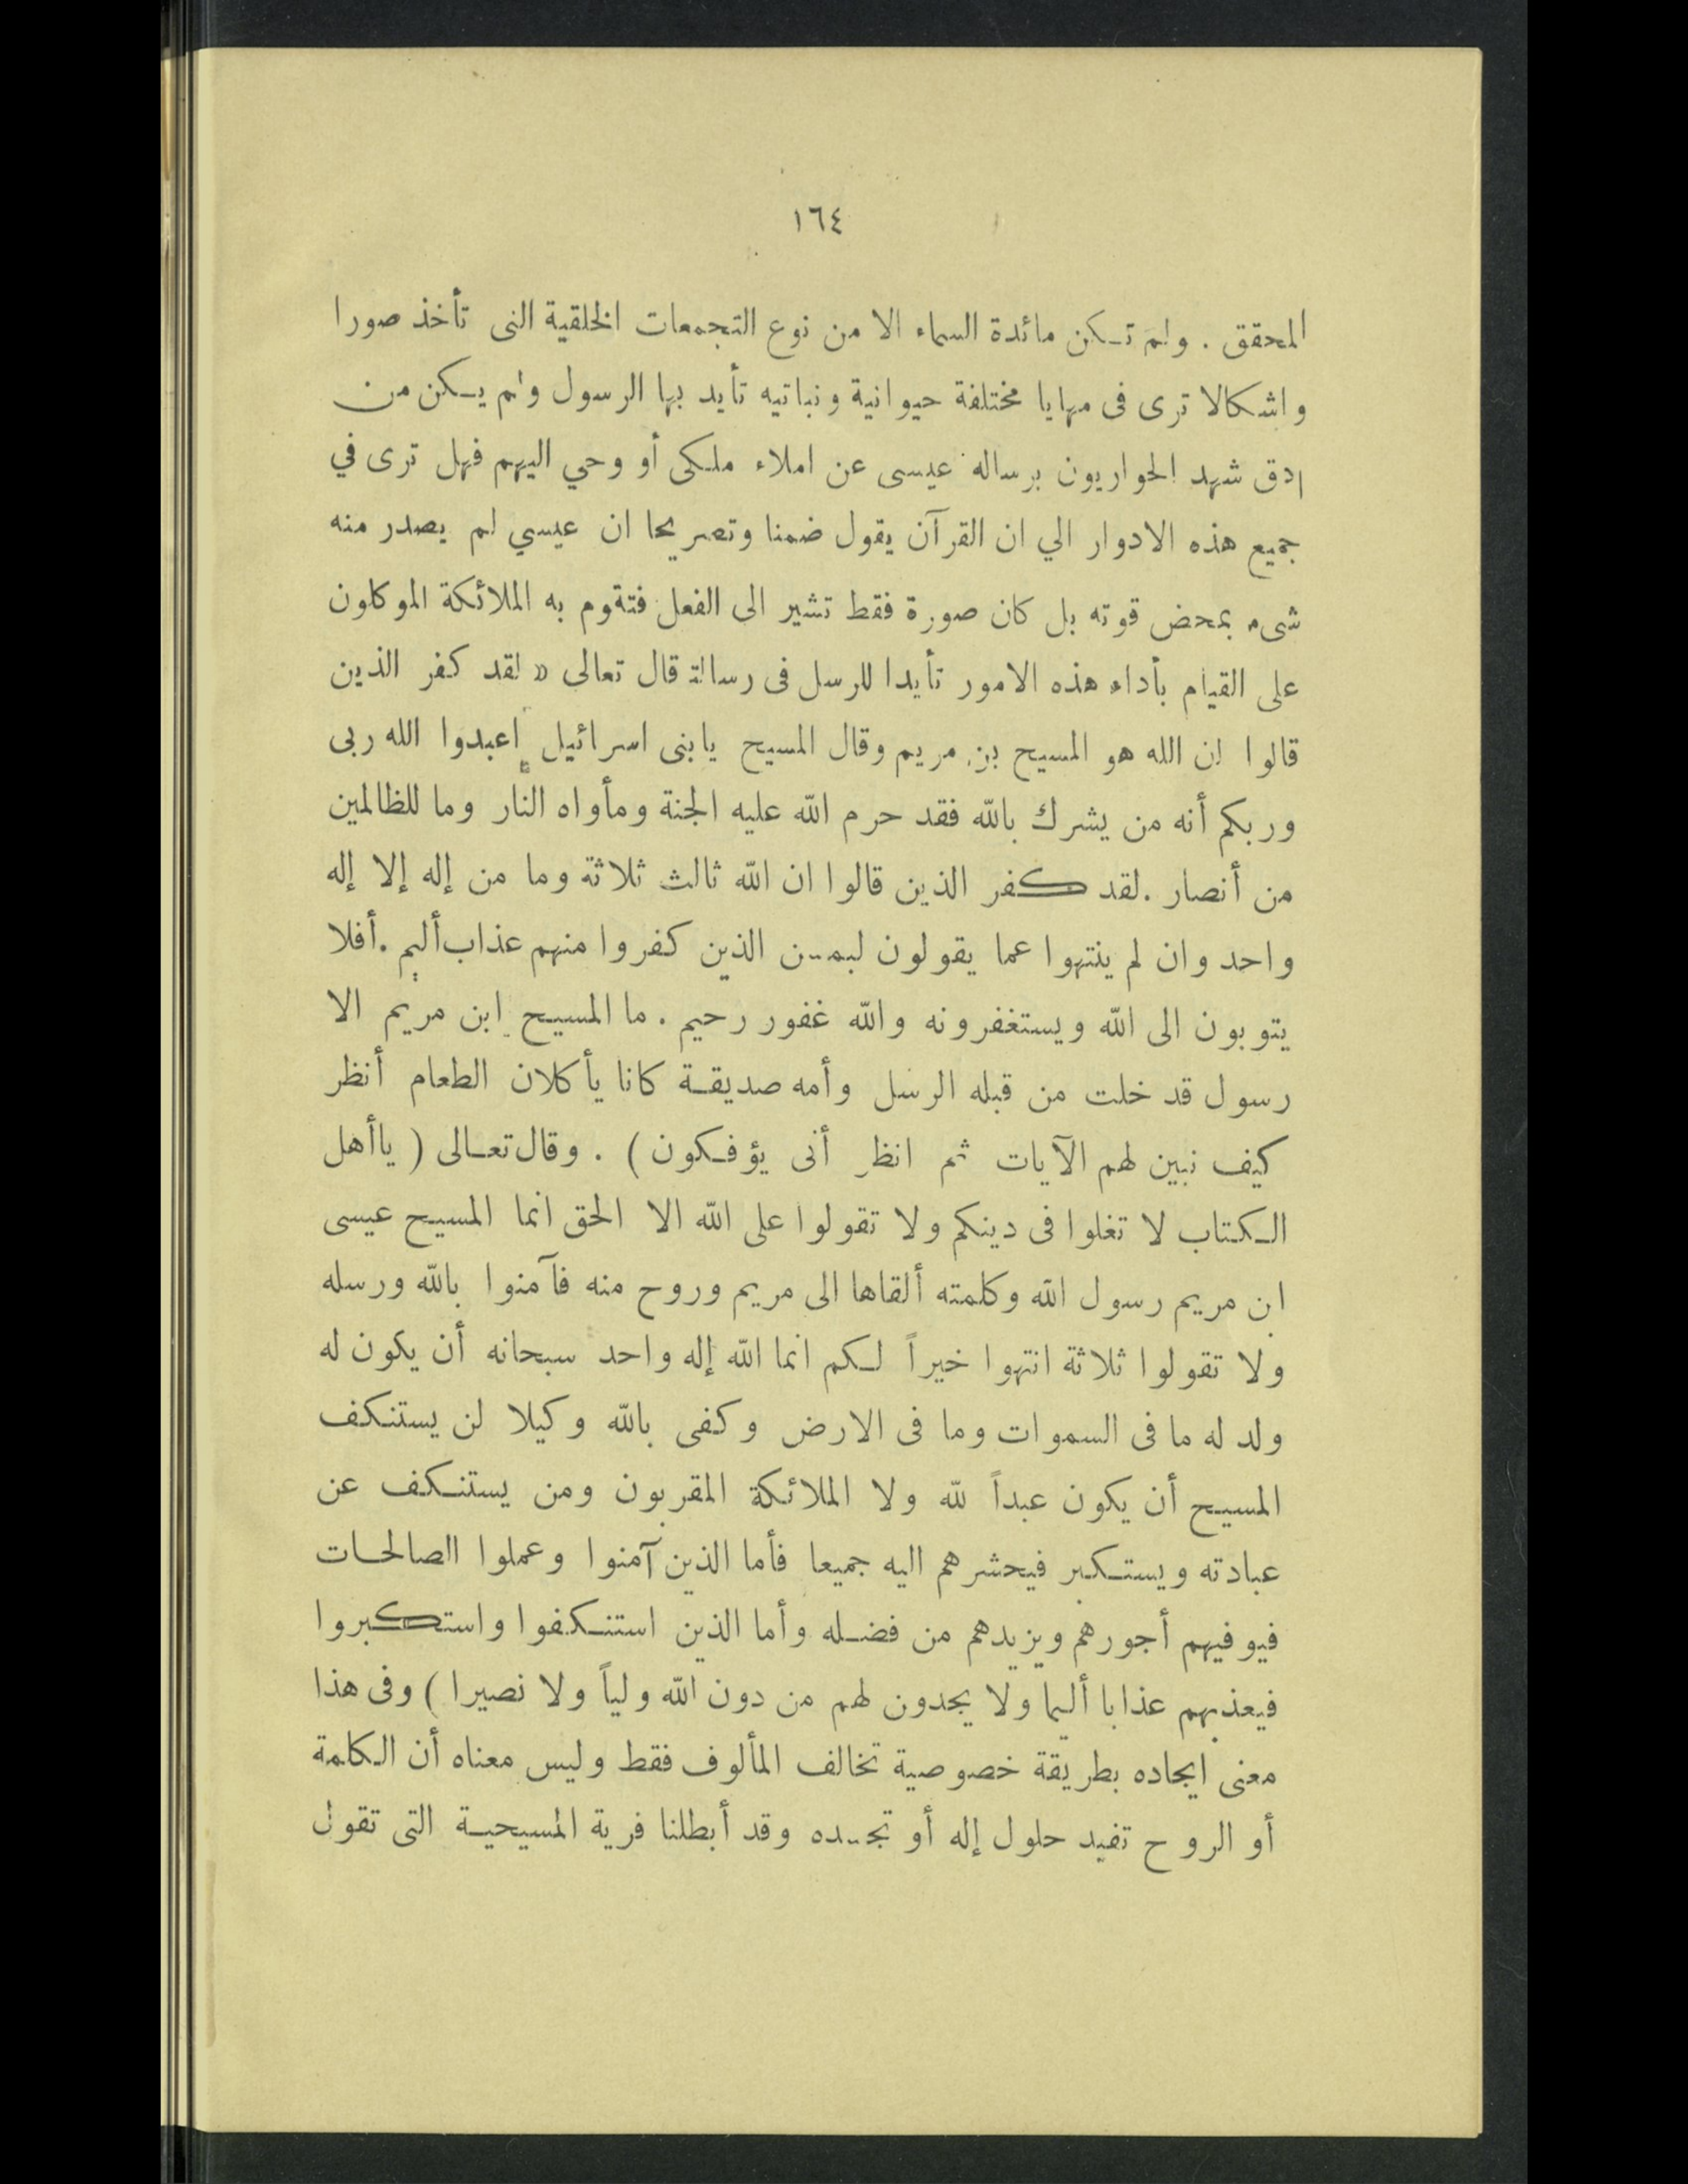 ١٦٤
المحقق . ولم تكن مائدة السماء الا من نوع التجمعات الخلقية التى تأخذ صورا
واشكالا ترى فى مهايا مختلفة حيوانية ونباتيه تأيد بها الرسول ولم يكن من
ادق شهد الحواريون برساله عيسى عن املاء ملكى أو وحي اليهم فهل ترى في
جميع هذه الادوار الي ان القرآن يقول ضمنا وتصريحا ان عيسي لم يصدر منه
شىء بمحض قوته بل كان صورة فقط تشير الى الفعل فتقوم به الملائكة الموكلون
على القيام بأداء هذه الامور تأيدا للرسل فى رسالة قال تعالى « لقد كفر الذين
قالوا ان الله هو المسيح بن مريم وقال المسيح يابنى اسرائيل اعبدوا الله ربى
وربكم أنه من يشرك بالله فقد حرم الله عليه الجنة ومأواه النار وما للظالمين
من أنصار . لقد كفر الذين قالوا ان الله ثالث ثلاثة وما من إله إلا إله
واحد وان لم ينتهوا عما يقولون ليمسن الذين كفروا منهم عذاب أليم . أفلا
يتوبون الى الله ويستغفرونه والله غفور رحيم . ما المسيح ابن مريم الا
رسول قد خلت من قبله الرسل وأمه صديقة كانا يأكلان الطعام أنظر
كيف نبين لهم الآيات ثم انظر أنى يؤفكون ) . وقال تعالى ( ياأهل
الكتاب لا تغلوا فى دينكم ولا تقولوا على الله الا الحق انما المسيح عيسى
ابن مريم رسول الله وكلمته ألقاها الى مريم وروح منه فآمنوا بالله ورسله
ولا تقولوا ثلاثة انتهوا خيراً لكم انما الله إله واحد سبحانه أن يكون له
ولد له ما فى السموات وما فى الارض وكفى بالله وكيلا لن يستنكف
المسيح أن يكون عبداً لله ولا الملائكة المقربون ومن يستنكف عن
عبادته ويستكبر فيحشرهم اليه جميعا فأما الذين آمنوا وعملوا الصالحات
فيوفيهم أجورهم ويزيدهم من فضله وأما الذين استنكفوا واستكبروا
فيعذبهم عذابا أليما ولا يجدون لهم من دون الله ولياً ولا نصيرا ) وفى هذا
معنى ايجاده بطريقة خصوصية تخالف المألوف فقط وليس معناه أن الكلمة
أو الروح تفيد حلول إله أو تجسيده وقد أبطلنا فرية المسيحية التى تقول